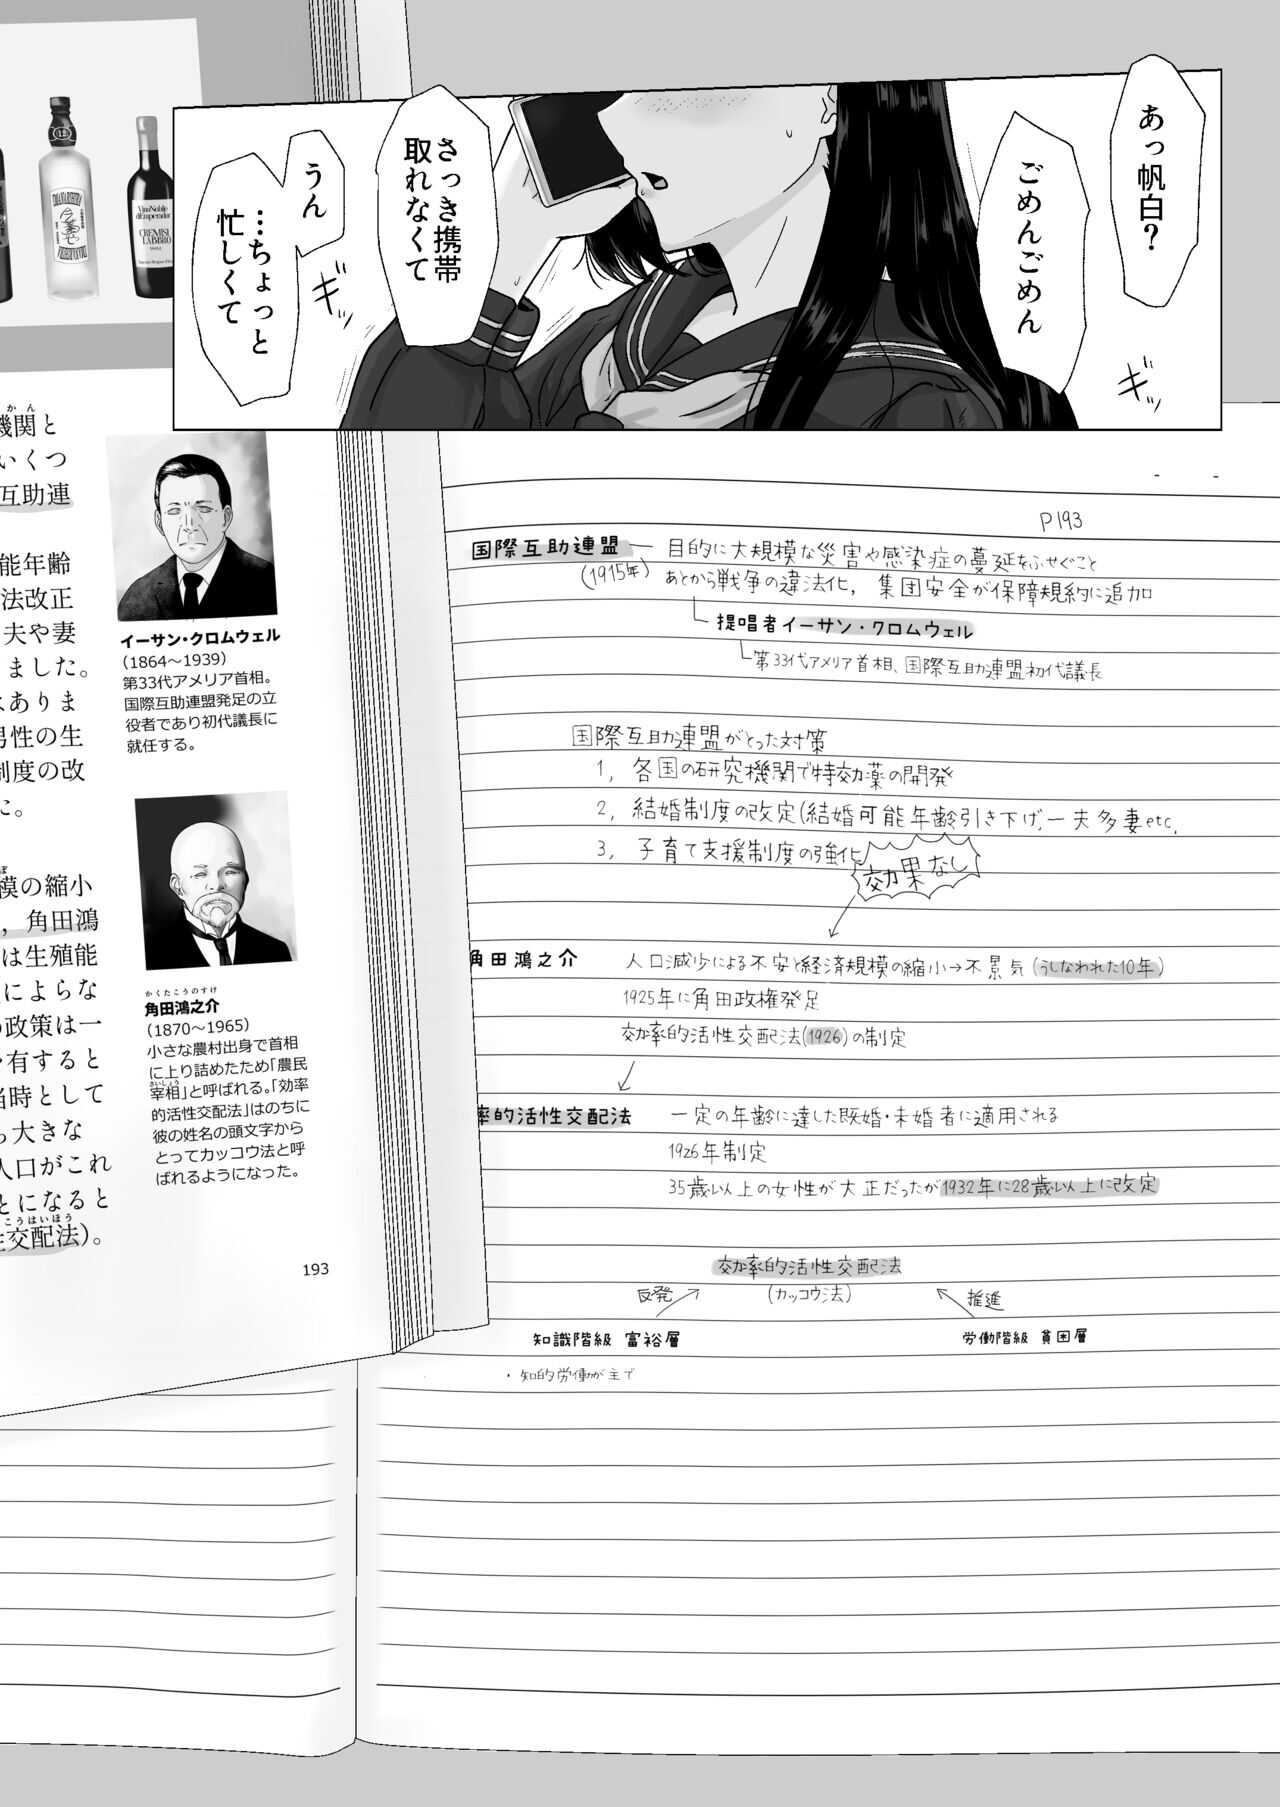 あっ帆白?
ごめんごめん
ギッ
さっき携帯
取れなくて
うん
…ちょっと
忙しくて
ギシ
Vino Nobile
di Emperador
CREMISI
LABBRO
かん
機関と
いくつ
互助連
能年齢
法改正
夫や妻
りました。
はありま
男性の生
制度の改
た。
模の縮小
，角田鴻
は生殖能
によらな
の政策は一
を有すると
当時として
ら大きな
人口がこれ
とになると
こうはいほう
性交配法)。
イーサン・クロムウェル
(1864〜1939)
第33代アメリア首相。
国際互助連盟発足の立
役者であり初代議長に
就任する。
かくたこうのすけ
角田鴻之介
(1870〜1965)
小さな農村出身で首相
に上り詰めたため「農民
さいしょう
宰相」と呼ばれる。「効率
的活性交配法」はのちに
彼の姓名の頭文字から
とってカッコウ法と呼
ばれるようになった。
193
P193
国際互助連盟 — 目的に大規模な災害や感染症の蔓延をふせぐこと
(1915年) あとから戦争の違法化, 集団安全が保障規約に追加
提唱者イーサン・クロムウェル
第33代アメリア首相、国際互助連盟初代議長
国際互助連盟がとった対策
1, 各国の研究機関で特効薬の開発
2, 結婚制度の改定(結婚可能年齢引き下げ、一夫多妻etc.
3, 子育て支援制度の強化
効果なし
角田鴻之介 人口減少による不安と経済規模の縮小→不景気(うしなわれた10年)
1925年に角田政権発足
効率的活性交配法(1926)の制定
率的活性交配法 一定の年齢に達した既婚・未婚者に適用される
1926年制定
35歳以上の女性が大正だったが1932年に28歳以上に改定
効率的活性交配法
反発 (カッコウ法) 推進
知識階級 富裕層 労働階級 貧困層
・知的労働が主で